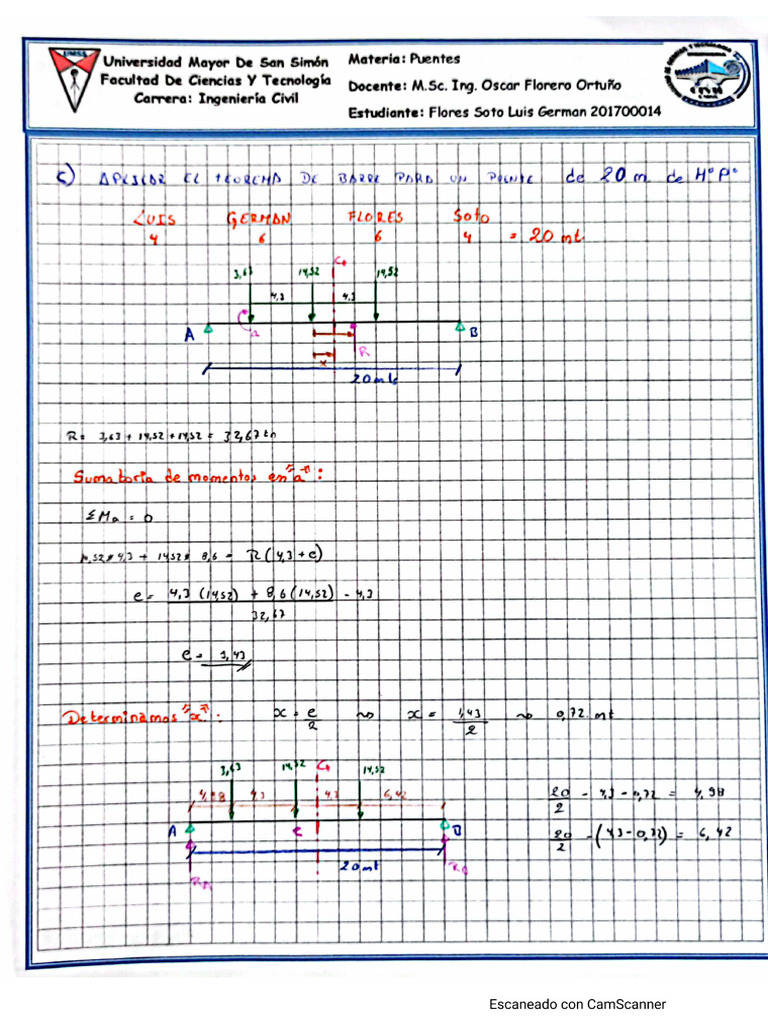 UMSS
Universidad Mayor De San Simón
Facultad De Ciencias Y Tecnología
Carrera: Ingeniería Civil
Materia: Puentes
Docente: M.Sc. Ing. Oscar Florero Ortuño
Estudiante: Flores Soto Luis German 201700014
c) APLICAR EL TEOREMA DE BARRE PARA UN PUENTE de 20 m. de HºPº
LUIS GERMAN FLORES Soto
4 6 6 4 = 20 mt.
3,63 14,52 C+ 14,52
4,3 4,3
A a B
R
x
20 mts
R = 3,63 + 14,52 + 14,52 = 32,67 tn
Sumatoria de momentos en "a":
ΣMa = 0
14,52 * 4,3 + 14,52 * 8,6 = R (4,3 + e)
e = 4,3 (14,52) + 8,6 (14,52) - 4,3
32,67
e = 1,43
Determinamos "x": x = e/2 ~> x = 1,43/2 ~> 0,72 mt
3,63 14,52 C+ 14,52
4,98 4,3 4,3 6,42
A C B
20 mt
RA RB
20/2 - 4,3 - 0,72 = 4,98
20/2 - (4,3 - 0,72) = 6,42
Escaneado con CamScanner